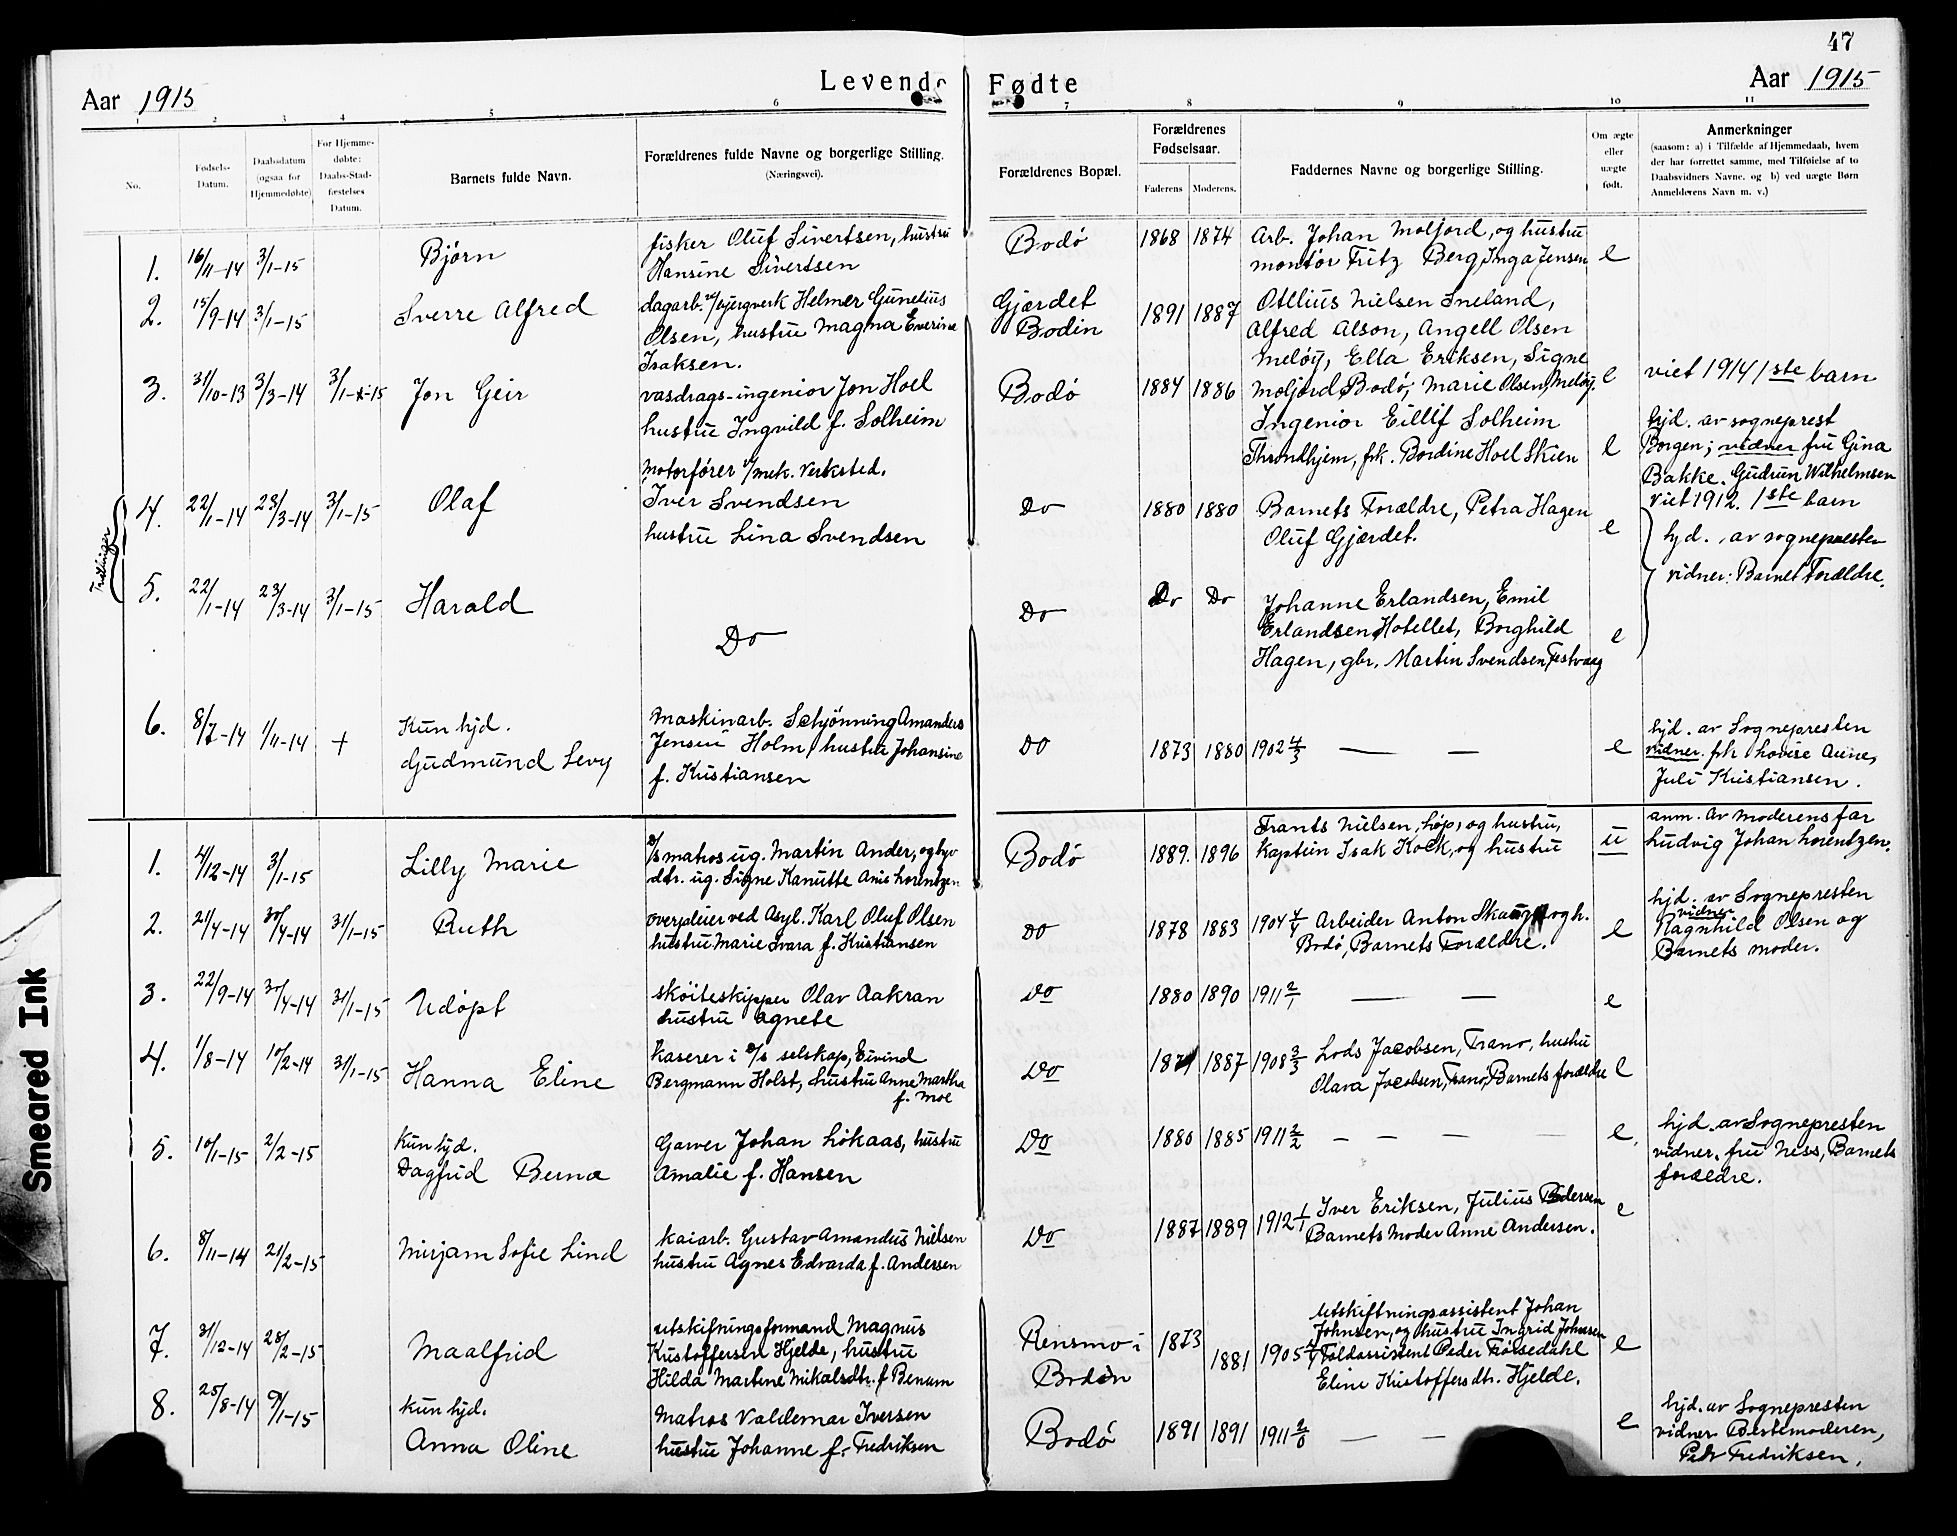 47
Levende Fødte
Aar 1915
Aar 1915
1
2
3
4
5
6
7
8
9
10
11
No.
Fødsels-
Datum.
Daabsdatum
(ogsaa for
Hjemmedøbte)
For Hjemme-
døbte:
Daabs-Stad-
fæstelses
Datum.
Barnets fulde Navn.
Forældrenes fulde Navne og borgerlige Stilling.
(Næringsvei).
Forældrenes Bopæl.
Forældrenes
Fødselsaar.
Faderens
Moderens.
Faddernes Navne og borgerlige Stilling.
Om ægte
eller
uægte
født.
Anmerkninger
(saasom: a) i Tilfælde af Hjemmedaab, hvem
der har forrettet samme, med Tilføielse af to
Daabsvidners Navne. og b) ved uægte Børn
Anmelderens Navn m. v.)
1.
16/11-14
3/1-15
Bjørn
fisker Oluf Sivertsen, hustru
Hansine Sivertsen
Bodø
1868
1874
Arb. Johan Moljord, og hustru
montør Fritz Berg, Inga Jensen
e
2.
15/9-14
3/1-15
Sverre Alfred
dagarb. v/bjergverk Helmer Gunelius
Olsen, hustru Magna Everine
Isaksen.
Gjærdet
Bodin
1891
1887
Otelius Nielsen Sneland,
Alfred Alson, Angell Olsen
Meløy, Ella Eriksen, Signe
Moljord Bodø, Marie Olsen, Meløy.
e
viet 1914 1ste barn
3.
31/10-13
3/3-14
3/1-15
Jon Geir
vasdrags-ingeniør Jon Hoel
hustru Ingvild f. Solheim
Bodø
1884
1886
Ingeniør Eillif Solheim
Throndhjem, frk. Bordine Hoel Skien
e
hjd. av sogneprest
Borgen; vidner fru Gina
Bakke. Gudrun Wilhelmsen
viet 1912. 1ste barn
Tvillinger
4.
22/1-14
23/3-14
3/1-15
Olaf
Motorfører v/mek. Verksted.
Iver Svendsen
hustru Lina Svendsen
Do
1880
1880
Barnets Forældre, Petra Hagen
Oluf Gjærdet.
e
hjd. av sognepresten
vidner: Barnets Forældre.
5.
22/1-14
23/3-14
3/1-15
Harald
Do
Do
Do
Do
Johanne Erlandsen, Emil
Erlandsen Hotellet, Borghild
Hagen, gbr. Martin Svendsen, Festvaag
e
6.
8/7-14
1/11-14
+
Kun hjd.
Gudmund Levy
Maskinarb. Schjønning Amanders
Jensen Holm, hustru Johansine
f. Kristiansen
Do
1873
1880
1902 4/3 — —
e
hjd. av Sognepresten
vidner. frk Lovise Aune,
Juli Kristiansen.
1.
4/12-14
3/1-15
Lilly Marie
d/s matros ug. Martin Ander, og
dtr. ug. Signe Kanutte Anis Lorentzen
Bodø
1889.
1896
Frants Nielsen, og hustru,
Kaptein Isak Koek, og hustru
u
anm. av moderens far
Ludvig Johan Lorentzen.
2.
21/4-14
30/4-14
31/1-15
Ruth
overpleier ved Asyl. Karl Oluf Olsen
hustru Marie Svara f. Kristiansen
Do
1878
1883
1904 4/4 Arbeider Anton Skaug og h.
Bodø, Barnets Forældre.
e
hjd. av Sognepresten
vidner
Ragnhild Olsen og
Barnets moder.
3.
22/9-14
30/4-14
31/1-15
Udøpt
skøiteskipper Olav Aakran
hustru Agnete
Do
1880
1890
1911 2/1 — —
e
4.
1/8-14
10/2-14
31/1-15
Hanna Eline
Kaserer i d/s selskap, Eivind
Bergmann Holst, hustru Anne Martha
f. Moe
Do
1887
1908 3/3 Lods Jacobsen, Tranø, hustru
Olava Jacobsen, Tranø, Barnets forældre
e
5.
10/1-15
2/2-15
Kun hjd.
Dagfrid Berna
Garver Johan Løkaas, hustru
Amalie f. Hansen
Do
1880
1885
1911 2/2 — — — —
e.
hjd. av Sognepresten
vidner. fru Ness, Barnets
forældre.
6.
8/11-14
21/2-15
Mirjam Sofie Lind
kaiarb. Gustav Amandus Nilsen
hustru Agnes Edvarda f. Andersen
Do
1887
1889
1912 1/1 Iver Eriksen, Julius Pedersen
Barnets Moder Anne Andersen.
e
7.
31/12-14
28/2-15
Maalfrid
utskiftningsformand Magnus
Kristoffersen Hjelde, hustru
Hilda Martene Mikalsdtr. f Benum
Rensmo i
Bodin
1873
1881
1905 4/4
Utskiftningsassistent Johan
Johnsen, og hustru Ingrid Johnsen
Toldassistent Peder Frøsedahl
Eline Kristoffersdtr. Hjelde.
e
8.
25/8-14
9/1-15
Kun hjd.
Anna Oline
Matros Valdemar Iversen
hustru Johanne f. Fredriksen
Bodø
1891
1891
1911 2/0 — —
e
hjd. av Sognepresten
vidner. Bestemoderen,
Petr Fredriksen.
Smeared Ink